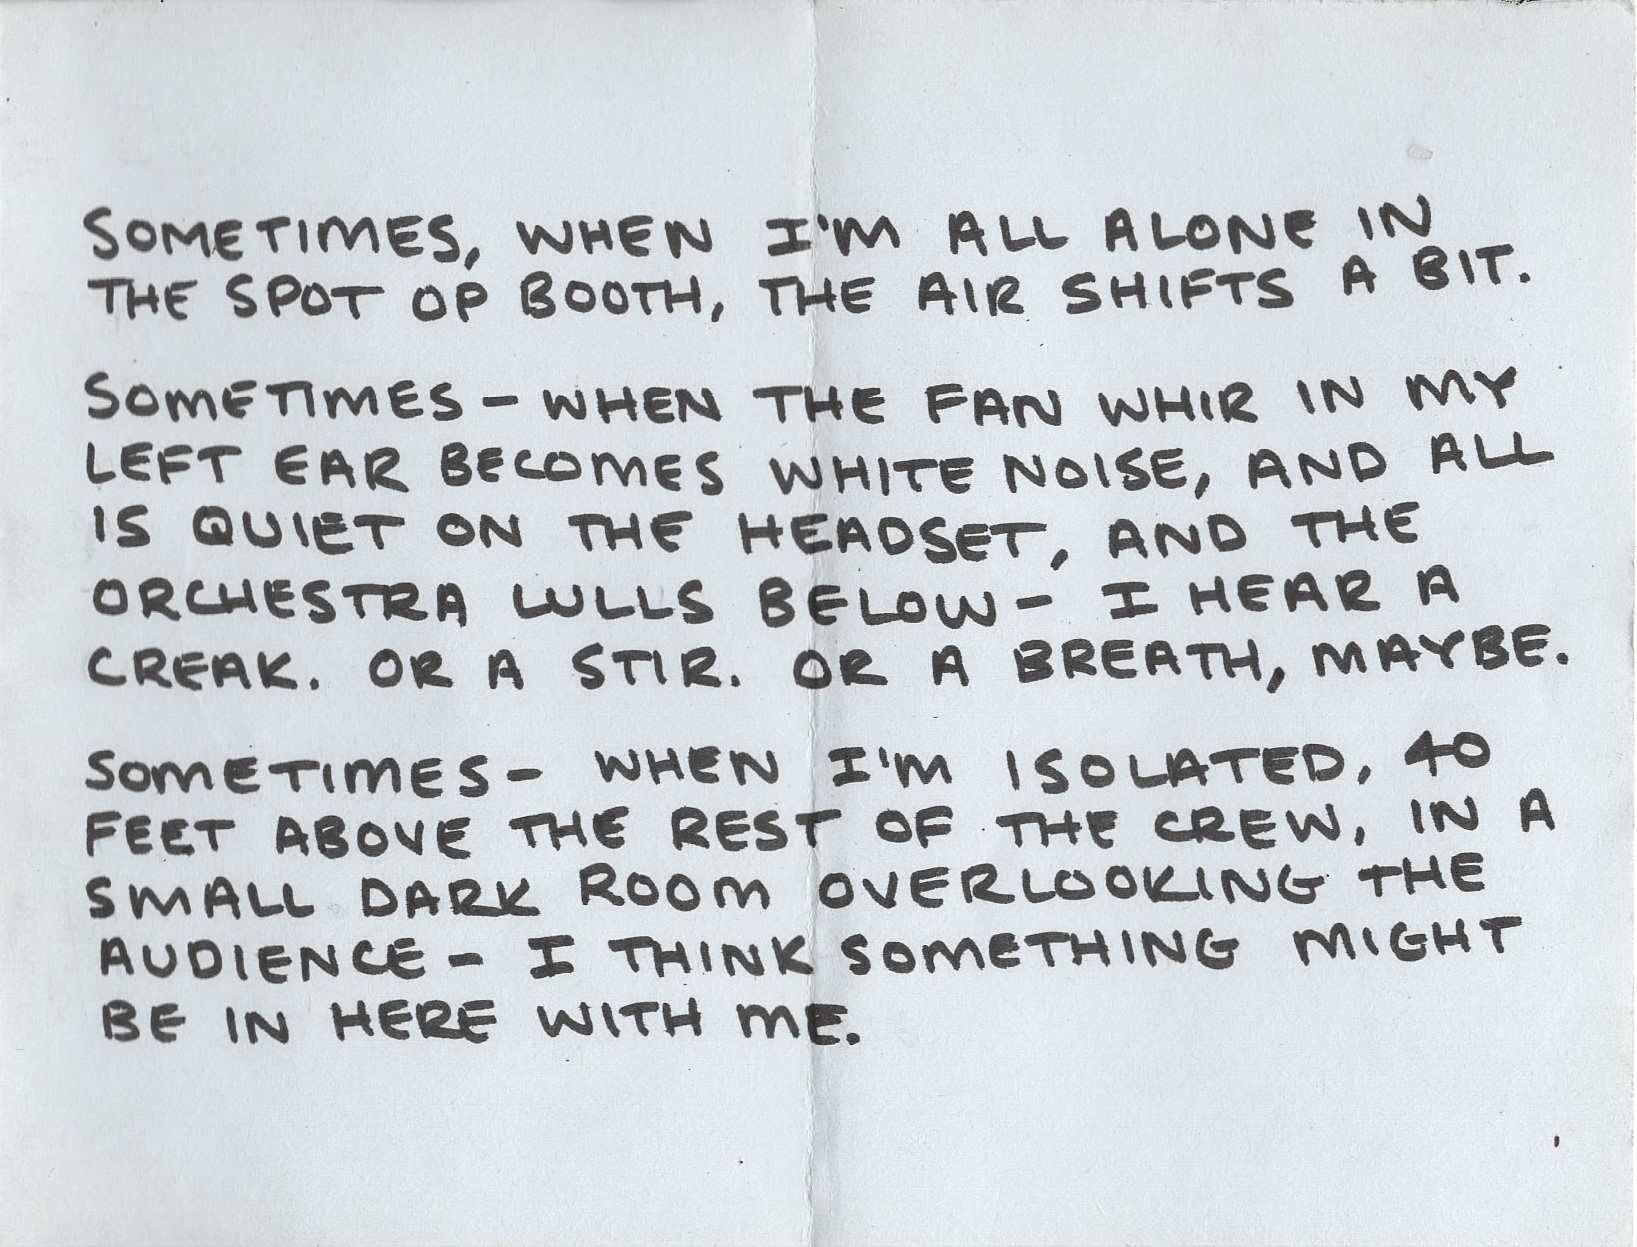 SOMETIMES, WHEN I'M ALL ALONE IN
THE SPOT OP BOOTH, THE AIR SHIFTS A BIT.
SOMETIMES - WHEN THE FAN WHIR IN MY
LEFT EAR BECOMES WHITE NOISE, AND ALL
IS QUIET ON THE HEADSET, AND THE
ORCHESTRA LULLS BELOW - I HEAR A
CREAK. OR A STIR. OR A BREATH, MAYBE.
SOMETIMES - WHEN I'M ISOLATED, 40
FEET ABOVE THE REST OF THE CREW, IN A
SMALL DARK ROOM OVERLOOKING THE
AUDIENCE - I THINK SOMETHING MIGHT
BE IN HERE WITH ME.